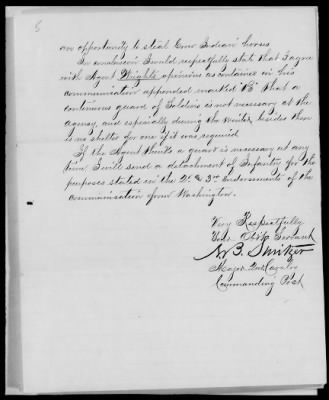 5
an opportunity to steal Crow Indian horses
In conclusion I would respectfully state that I agree
with Agent Wrights opinion as contained in his
communication appended marked "B" that a
continuous guard of Soldiers is not necessary at the
agency, and especially during the winter, besides there
is no shelter for one if it was required
If the Agent thinks a guard is necessary at any
time I will send a detachment of Infantry for the
purpose stated in the 2d & 3d endorsements of the
communication from Washington.
Very Respectfully
Your Obdt. Servant
N B. Switzer
Major 2nd Cavalry
Commanding Post